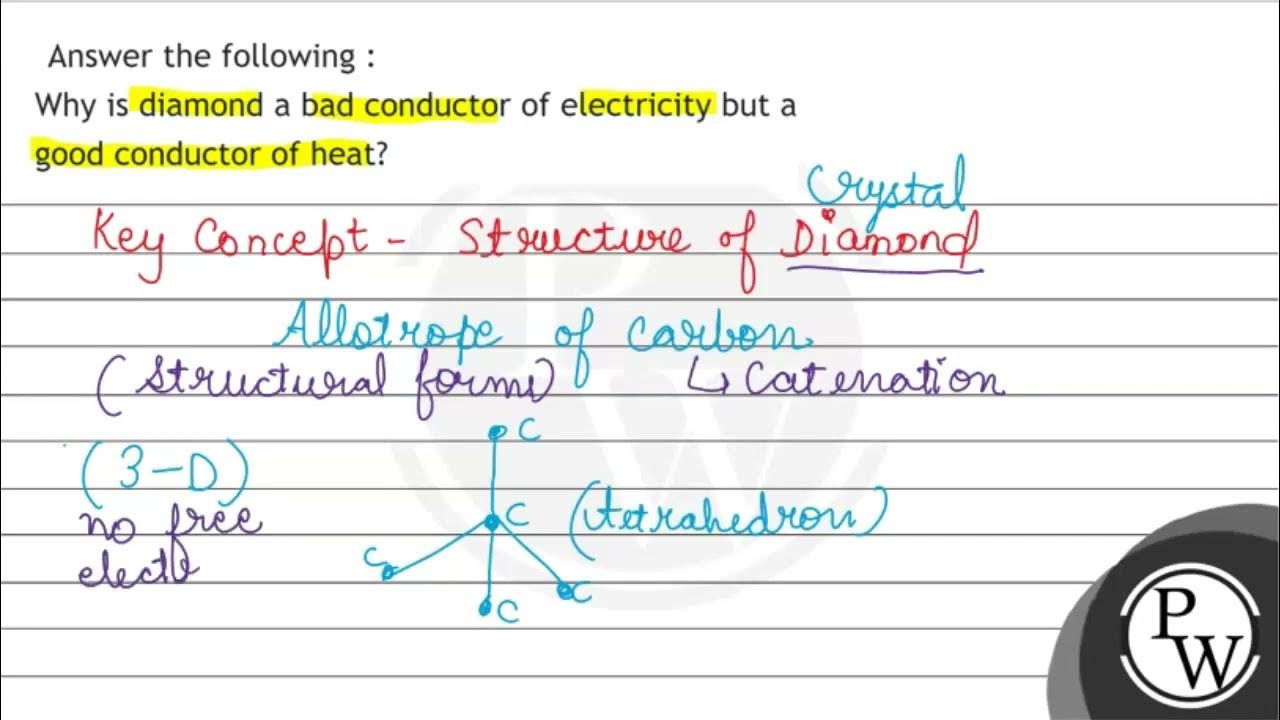 Answer the following :
Why is diamond a bad conductor of electricity but a
good conductor of heat?
Crystal
Key Concept - Structure of Diamond
Allotrope of carbon.
(Structural forms) ↳ Catenation
(3-D)
no free
electr
C
C (tetrahedron)
C
C
C
P
W
P
W